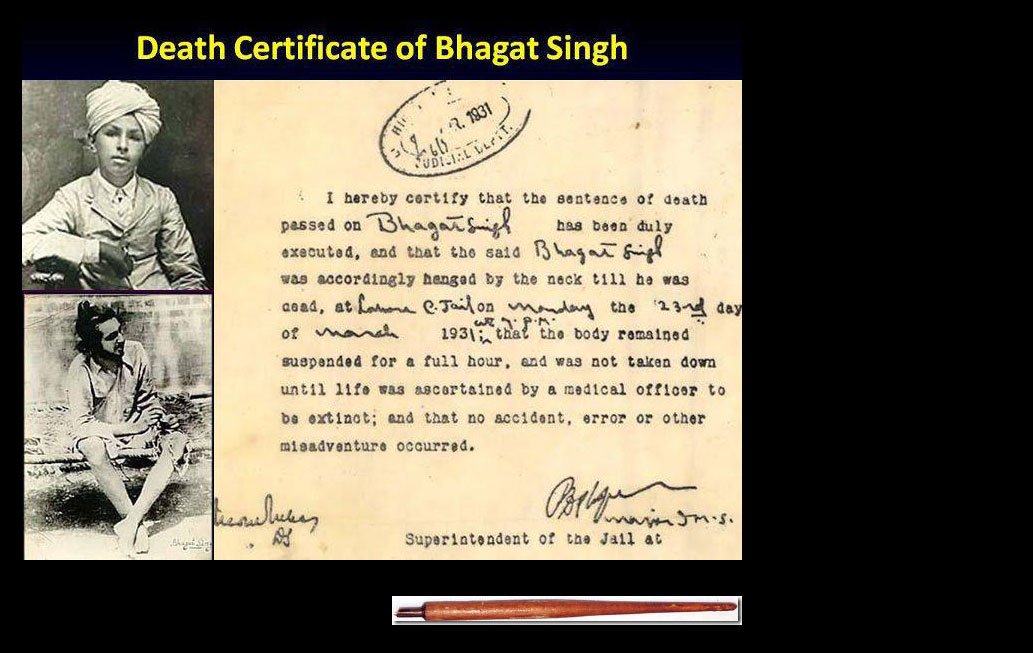 Death Certificate of Bhagat Singh
1931
JUDICIAL DEPTT.
I hereby certify that the sentence of death
passed on Bhagat Singh has been duly
executed, and that the said Bhagat Singh
was accordingly hanged by the neck till he was
dead, at Lahore C. Jail on Monday the 23rd day
of March 1931 at 7 P.M. that the body remained
suspended for a full hour, and was not taken down
until life was ascertained by a medical officer to
be extinct; and that no accident, error or other
misadventure occurred.
Major I.M.S.
Superintendent of the Jail at
Bhagat Singh